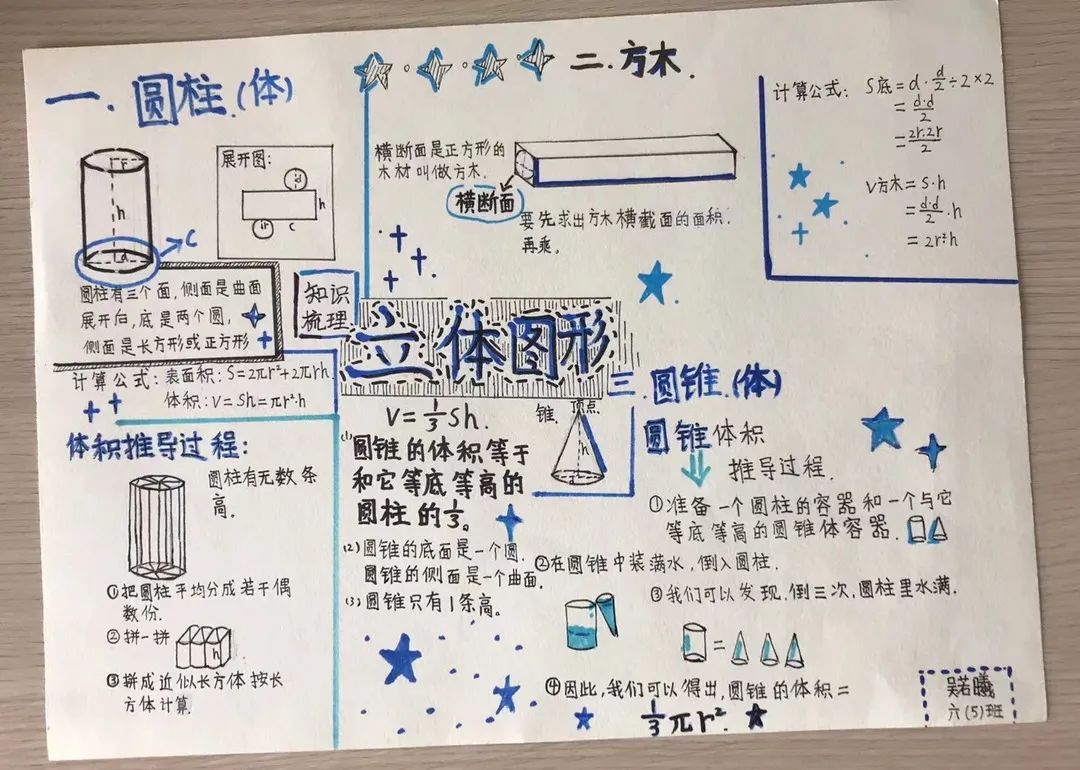 一.圆柱.(体)
r
h
d
C
展开图:
d
h
r
C
圆柱有三个面,侧面是曲面
展开后,底是两个圆,
侧面是长方形或正方形
计算公式:表面积:S=2πr²+2πrh
体积:V=Sh=πr²·h
体积推导过程:
圆柱有无数条
高.
①把圆柱平均分成若干偶
数份.
②拼一拼
h
③拼成近似长方体按长
方体计算.
二.方木.
横断面是正方形的
木材叫做方木.
横断面
要先求出方木横截面的面积.
再乘。
计算公式:S底=d·d/2÷2×2
=d·d/2
=2r.2r/2
V方木=S·h
=d·d/2·h
=2r²h
知识
梳理
立体图形
V=1/3Sh.
(1)圆锥的体积等于
和它等底等高的
圆柱的1/3。
(2)圆锥的底面是一个圆.
圆锥的侧面是一个曲面.
(3)圆锥只有1条高。
锥. 顶点
h
三.圆锥.(体)
圆锥体积
推导过程.
①准备一个圆柱的容器和一个与它
等底等高的圆锥体容器.
②在圆锥中装满水,倒入圆柱.
③我们可以发现,倒三次,圆柱里水满.
=
④因此,我们可以得出,圆锥的体积=
1/3πr².
吴若曦
六(5)班